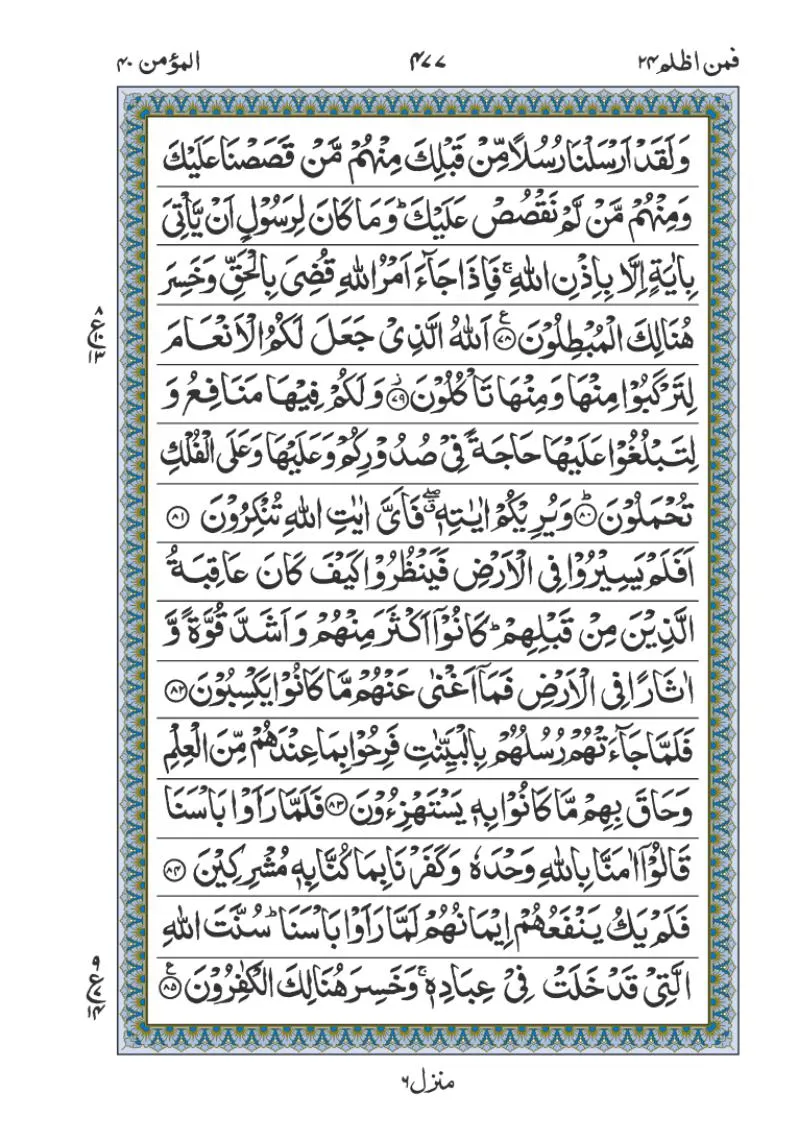 فمن اظلم ۲۴ ۴۷۷ المؤمن ۴۰
وَلَقَدۡ اَرۡسَلۡنَا رُسُلًا مِّنۡ قَبۡلِكَ مِنۡهُمۡ مَّنۡ قَصَصۡنَا عَلَيۡكَ
وَمِنۡهُمۡ مَّنۡ لَّمۡ نَقۡصُصۡ عَلَيۡكَؕ وَمَا كَانَ لِرَسُوۡلٍ اَنۡ يَّاۡتِىَ
بِاٰيَةٍ اِلَّا بِاِذۡنِ اللّٰهِۚ فَاِذَا جَآءَ اَمۡرُ اللّٰهِ قُضِىَ بِالۡحَقِّ وَخَسِرَ
هُنَالِكَ الۡمُبۡطِلُوۡنَ ﴿۷۸﴾ع اَللّٰهُ الَّذِىۡ جَعَلَ لَكُمُ الۡاَنۡعَامَ
لِتَرۡكَبُوۡا مِنۡهَا وَمِنۡهَا تَاۡكُلُوۡنَ ﴿۷۹﴾ز وَلَكُمۡ فِيۡهَا مَنَافِعُ وَ
لِتَبۡلُغُوۡا عَلَيۡهَا حَاجَةً فِىۡ صُدُوۡرِكُمۡ وَعَلَيۡهَا وَعَلَى الۡفُلۡكِ
تُحۡمَلُوۡنَ ﴿۸۰﴾ؕ وَيُرِيۡكُمۡ اٰيٰتِهٖ ۖق فَاَىَّ اٰيٰتِ اللّٰهِ تُنۡكِرُوۡنَ ﴿۸۱﴾
اَفَلَمۡ يَسِيۡرُوۡا فِى الۡاَرۡضِ فَيَنۡظُرُوۡا كَيۡفَ كَانَ عَاقِبَةُ
الَّذِيۡنَ مِنۡ قَبۡلِهِمۡؕ كَانُوۡۤا اَكۡثَرَ مِنۡهُمۡ وَاَشَدَّ قُوَّةً وَّ
اٰثَارًا فِى الۡاَرۡضِ فَمَاۤ اَغۡنٰى عَنۡهُمۡ مَّا كَانُوۡا يَكۡسِبُوۡنَ ﴿۸۲﴾
فَلَمَّا جَآءَتۡهُمۡ رُسُلُهُمۡ بِالۡبَيِّنٰتِ فَرِحُوۡا بِمَا عِنۡدَهُمۡ مِّنَ الۡعِلۡمِ
وَحَاقَ بِهِمۡ مَّا كَانُوۡا بِهٖ يَسۡتَهۡزِءُوۡنَ ﴿۸۳﴾ فَلَمَّا رَاَوۡا بَاۡسَنَا
قَالُوۡۤا اٰمَنَّا بِاللّٰهِ وَحۡدَهٗ وَكَفَرۡنَا بِمَا كُنَّا بِهٖ مُشۡرِكِيۡنَ ﴿۸۴﴾
فَلَمۡ يَكُ يَنۡفَعُهُمۡ اِيۡمَانُهُمۡ لَمَّا رَاَوۡا بَاۡسَنَاؕ سُنَّتَ اللّٰهِ
الَّتِىۡ قَدۡ خَلَتۡ فِىۡ عِبَادِهٖۚ وَخَسِرَ هُنَالِكَ الۡكٰفِرُوۡنَ ﴿۸۵﴾ع
۸ ع ۱۰ ۱۳
۹ ع ۷ ۱۴
منزل ۶